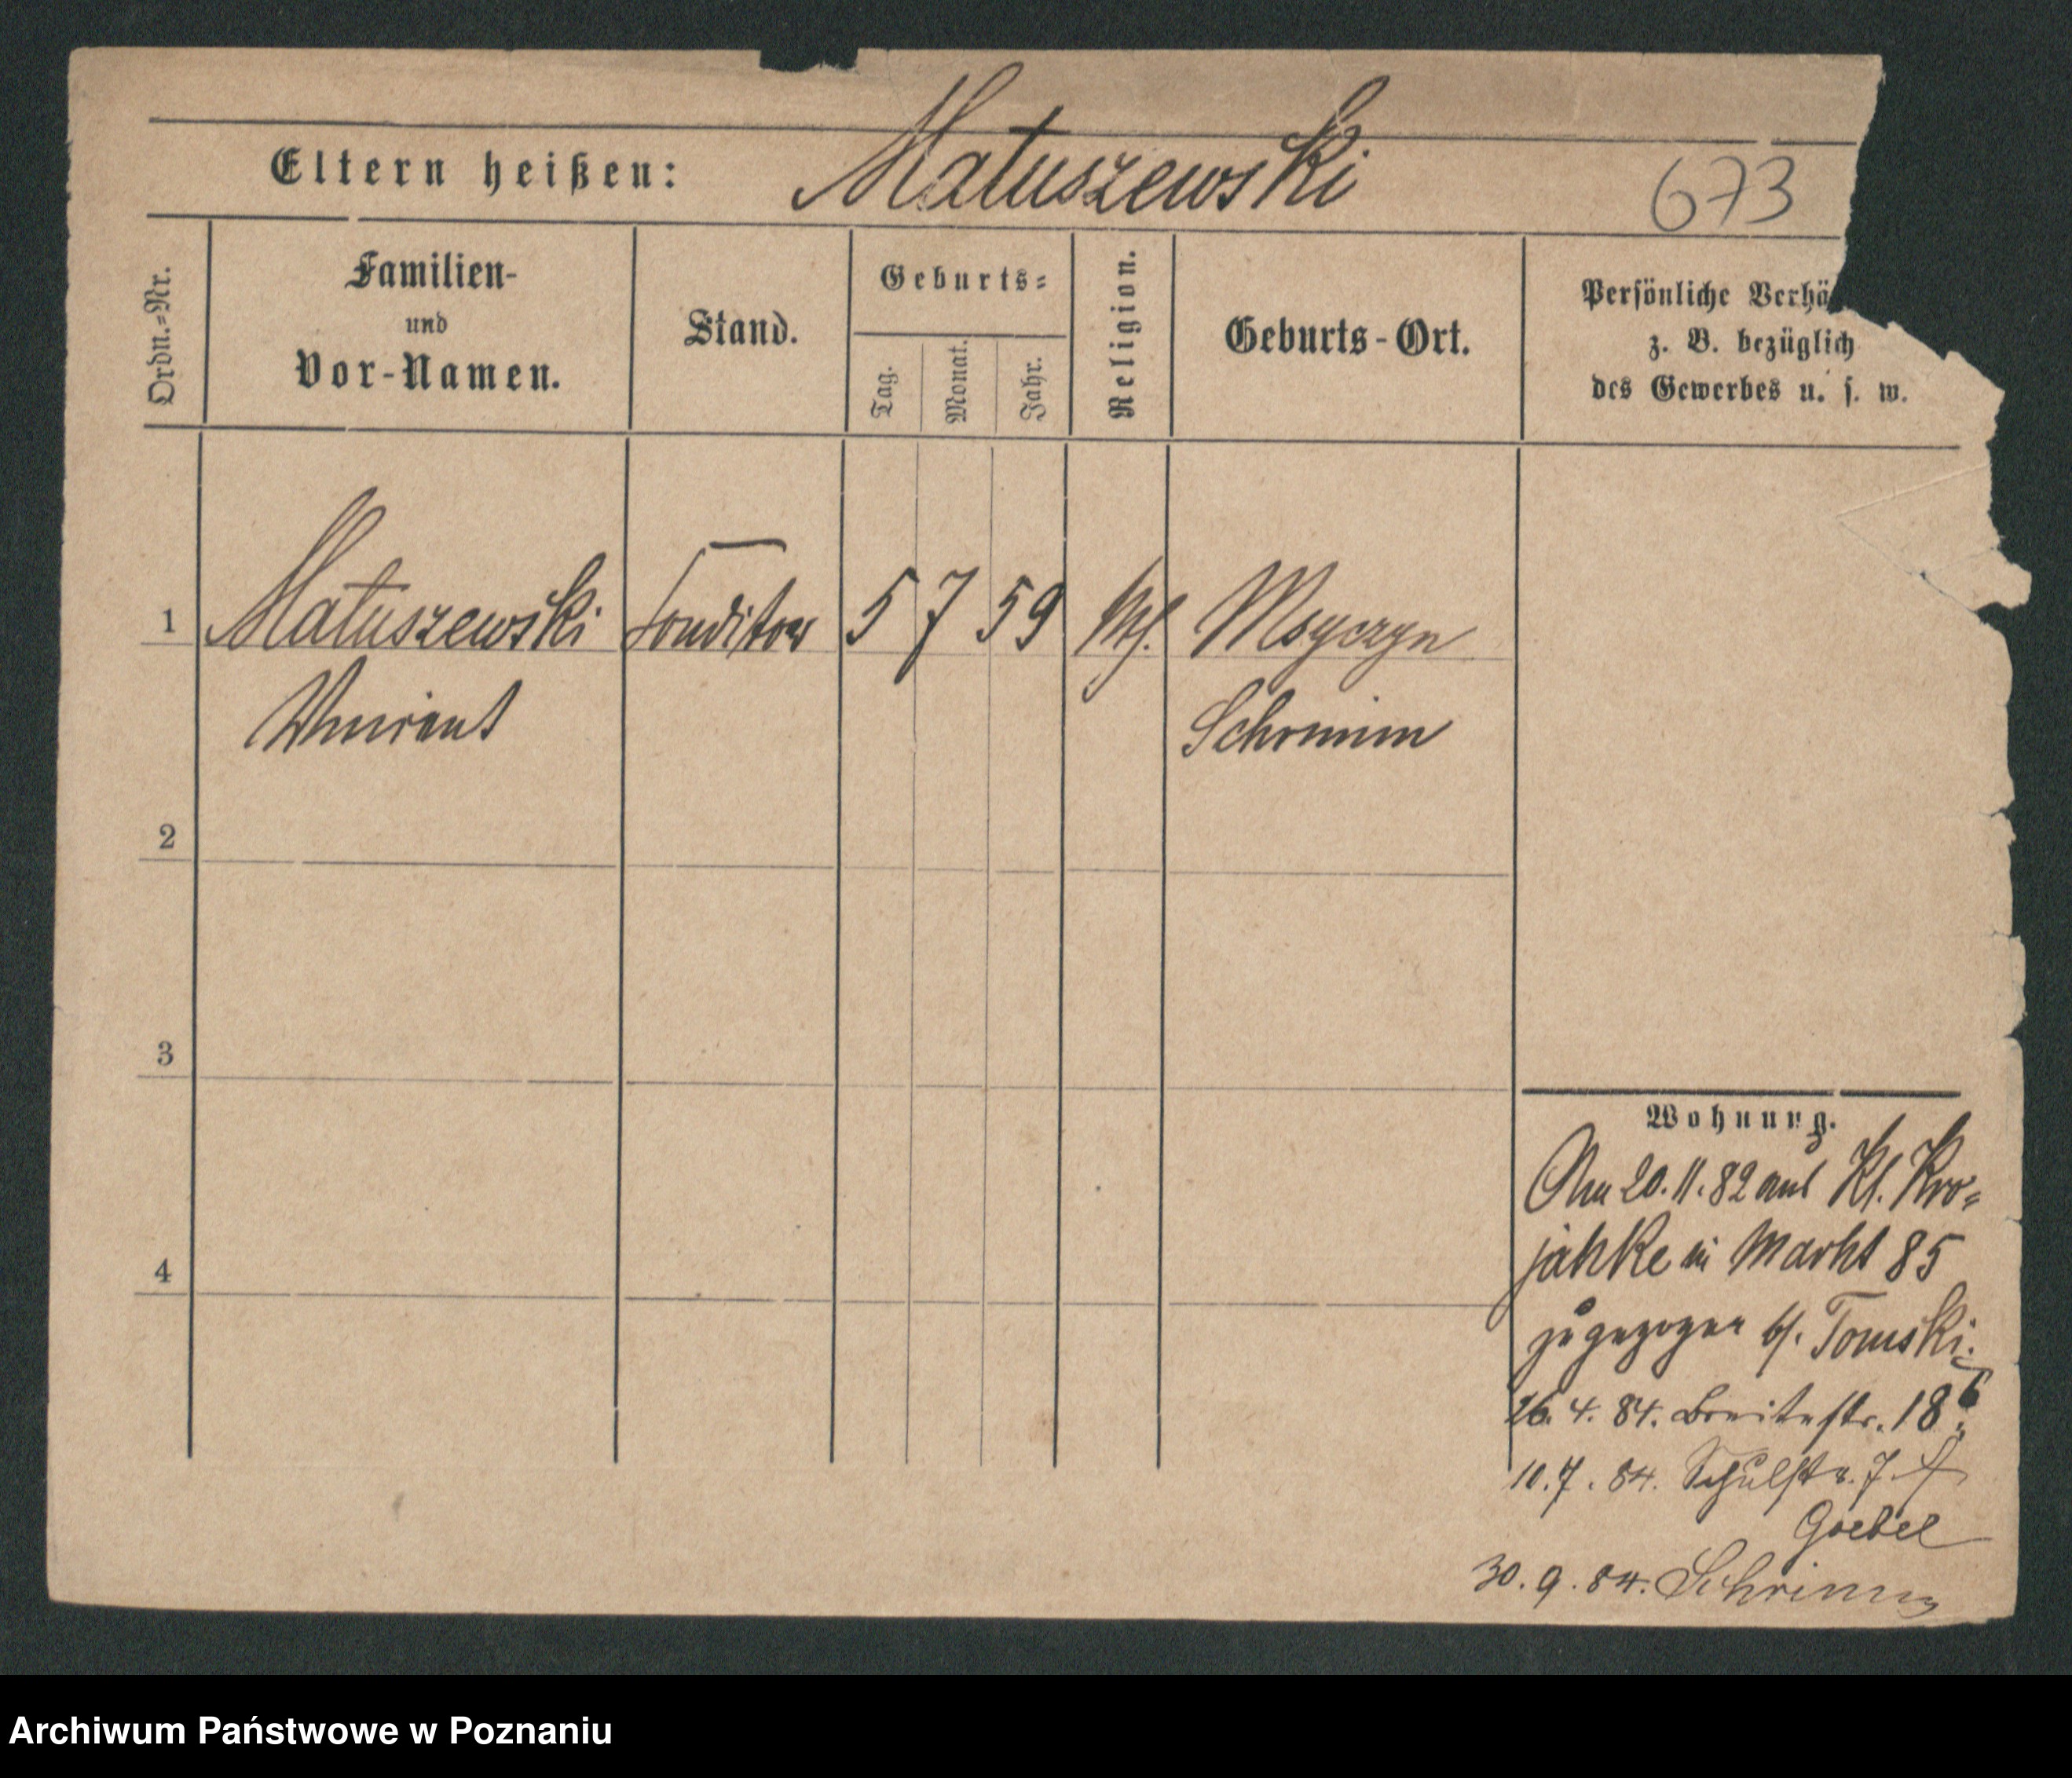 Eltern heißen: Matuszewski 673
Ordn.-Nr.
Familien-
und
Vor-Namen.
Stand.
Geburts-
Tag.
Monat.
Jahr.
Religion.
Geburts-Ort.
Persönliche Verhä
z. B. bezüglich
des Gewerbes u. s. w.
1 Matuszewski Conditor 5 7 59 Msyczyn
Schrimm
2
3
4
Wohnung.
Am 20.11.82 aus Kl. Kro-
jahke in Markt 85
zugezogen b/. Tomski.
26. 4. 84. Breitestr. 18
10. 7. 84. Schulstr. 7.
Goebel
30. 9. 84. Schrimm
Archiwum Państwowe w Poznaniu